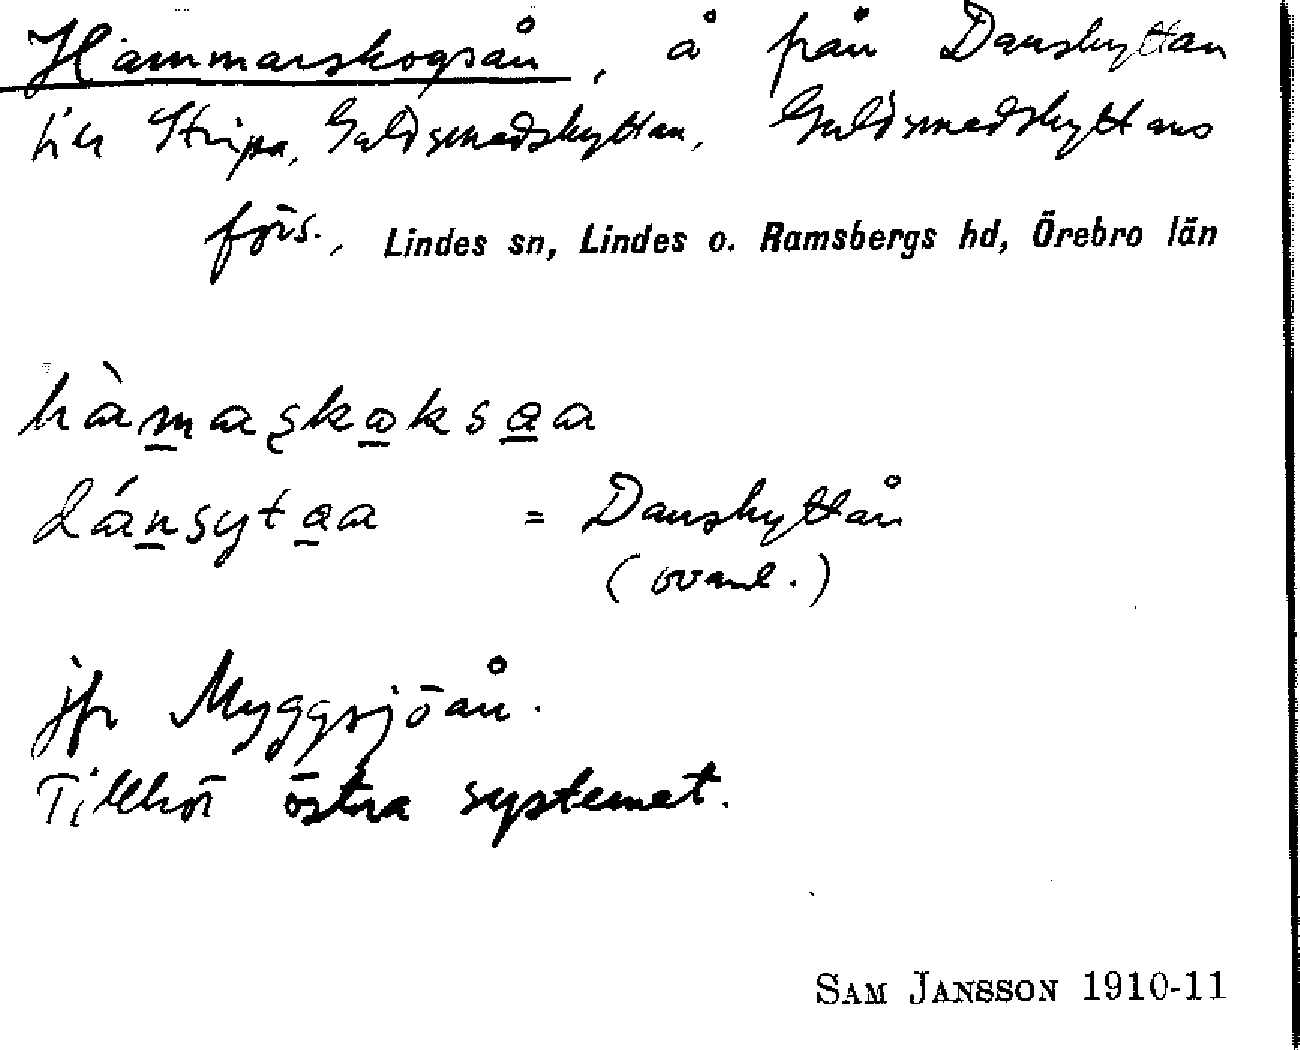 Hammarskogsån, å från Danshyttan
till Stripa, Guldsmedshyttan, Guldsmedshyttans
förs., Lindes sn, Lindes o. Ramsbergs hd, Örebro län
hàmaskoksaa
dánsytaa = Danshyttån
(ovanl.)
jfr Myggsjöån.
Tillhör östra systemet.
SAM JANSSON 1910-11